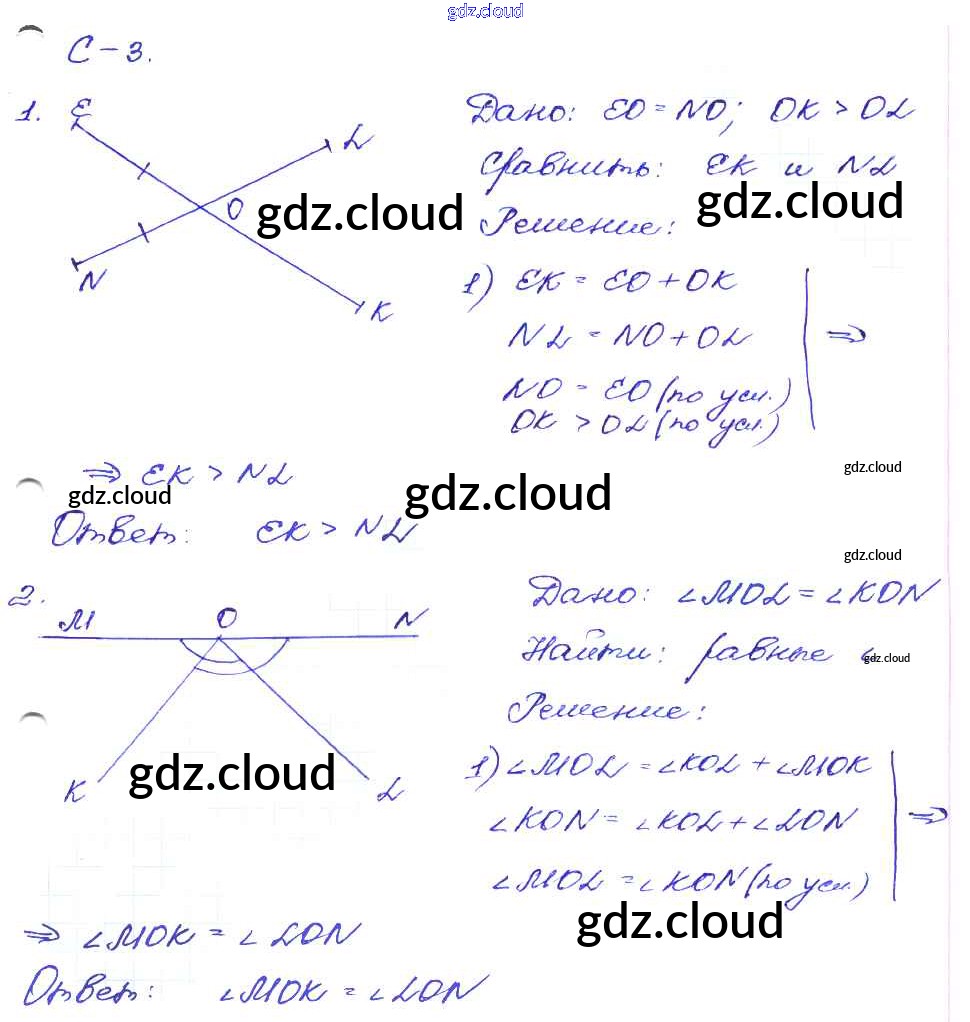 gdz.cloud
С-3.
1. E
L
O
N
K
Дано: EO = NO; OK > OL
Сравнить: EK и NL
gdz.cloud gdz.cloud
Решение:
1) EK = EO + OK
NL = NO + OL ⇒
NO = EO (по усл.)
OK > OL (по усл.)
⇒ EK > NL
gdz.cloud
gdz.cloud gdz.cloud
Ответ: EK > NL
gdz.cloud
2.
M O N
K L
Дано: ∠MOL = ∠KON
Найти: равные ∠
gdz.cloud
Решение:
gdz.cloud
1) ∠MOL = ∠KOL + ∠MOK
∠KON = ∠KOL + ∠LON ⇒
∠MOL = ∠KON (по усл.)
gdz.cloud
⇒ ∠MOK = ∠LON
Ответ: ∠MOK = ∠LON